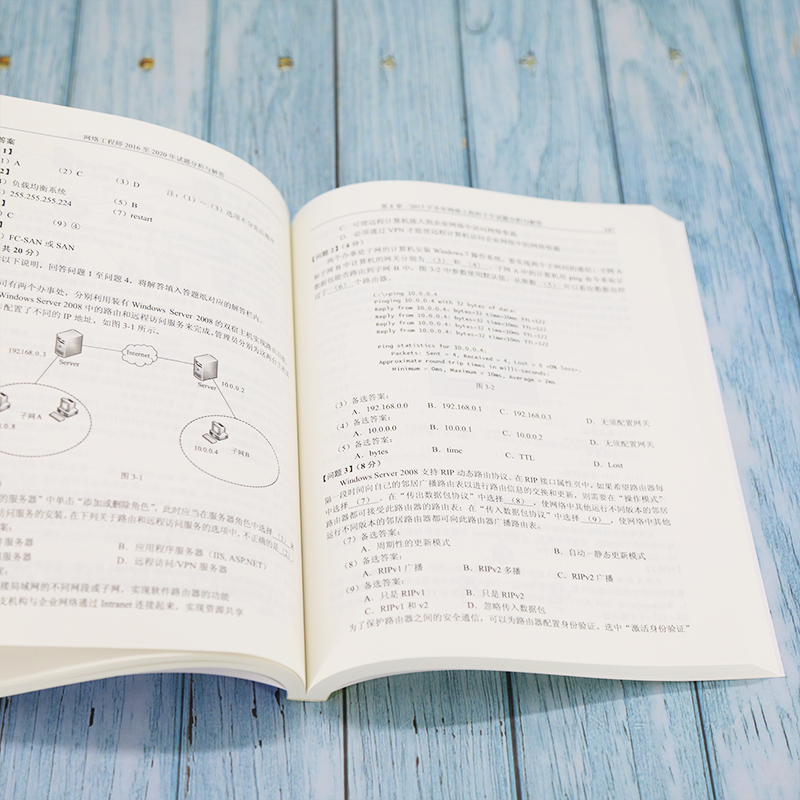 网络工程师 2016 至 2020 年试题分析与解答
答案
1】
1）A
（2）C
（3）D
注：（1）～（3）选项不分先后顺序
2】
4）负载均衡系统
（5）B
255.255.255.224
（7）restart
】
）C
（9）④
）FC-SAN 或 SAN
共 20 分）
以下说明，回答问题 1 至问题 4，将解答填入答题纸对应的解答栏内。
司有两个办事处，分别利用装有 Windows Server 2008 的双宿主机实现路由功能，
Windows Server 2008 中的路由和远程访问服务来完成。管理员分别为这两台主机
配置了不同的 IP 地址，如图 3-1 所示。
192.168.0.3
Server
Internet
Server
10.0.0.2
子网A
0.8
10.0.0.4
子网B
图 3-1
的服务器”中单击“添加或删除角色”，此时应当在服务器角色中选择（1）
访问服务的安装。在下列关于路由和远程访问服务的选项中，不正确的是（2）
案：
B．应用程序服务器（IIS, ASP.NET）
服务器
D．远程访问/VPN 服务器
案：
接局域网的不同网段或子网，实现软件路由器的功能
支机构与企业网络通过 Intranet 连接起来，实现资源共享
第 8 章 2017 下半年网络工程师下午试题分析与解答
C．可使远程计算机接入到企业网络中访问网络资源
D．必须通过 VPN 才能使远程计算机访问企业网络中的网络资源
【问题 2】（4 分）
两个办事处子网的计算机安装 Windows 7 操作系统，要实现两个子网间的通信，子网 A
和子网 B 中计算机的网关分别为（3）和（4）。子网 A 中的计算机用 ping 命令来验证
数据包能否路由到子网 B 中，图 3-2 中参数使用默认值，从参数（5）可以看出数据包经
过了（6）个路由器。
C:\>ping 10.0.0.4
Pinging 10.0.0.4 with 32 bytes of data:
Reply from 10.0.0.4: bytes=32 time<10ms TTL=122
Reply from 10.0.0.4: bytes=32 time<10ms TTL=122
Reply from 10.0.0.4: bytes=32 time<10ms TTL=122
Reply from 10.0.0.4: bytes=32 time<10ms TTL=122
Ping statistics for 10.0.0.4:
Packets: Sent = 4, Received = 4, Lost = 0 <0% loss>,
Approximate round trip times in milli-seconds:
Minimum = 0ms, Maximum = 10ms, Average = 2ms
图 3-2
（3）备选答案：
A．192.168.0.0 B．192.168.0.1 C．192.168.0.3 D．无须配置网关
（4）备选答案：
A．10.0.0.0 B．10.0.0.1 C．10.0.0.2 D．无须配置网关
（5）备选答案：
A．bytes B．time C．TTL D．Lost
【问题 3】（8 分）
Windows Server 2008 支持 RIP 动态路由协议。在 RIP 接口属性页中，如果希望路由器每
隔一段时间向自己的邻居广播路由表以进行路由信息的交换和更新，则需要在“操作模式”
中选择（7）。在“传出数据包协议”中选择（8），使网络中其他运行不同版本的邻居
路由器都可接受此路由器的路由表；在“传入数据包协议”中选择（9），使网络中其他
运行不同版本的邻居路由器都可向此路由器广播路由表。
（7）备选答案：
A．周期性的更新模式 B．自动－静态更新模式
（8）备选答案：
A．RIPv1 广播 B．RIPv2 多播 C．RIPv2 广播
（9）备选答案：
A．只是 RIPv1 B．只是 RIPv2
C．RIPv1 和 v2 D．忽略传入数据包
为了保护路由器之间的安全通信，可以为路由器配置身份验证。选中“激活身份验证”